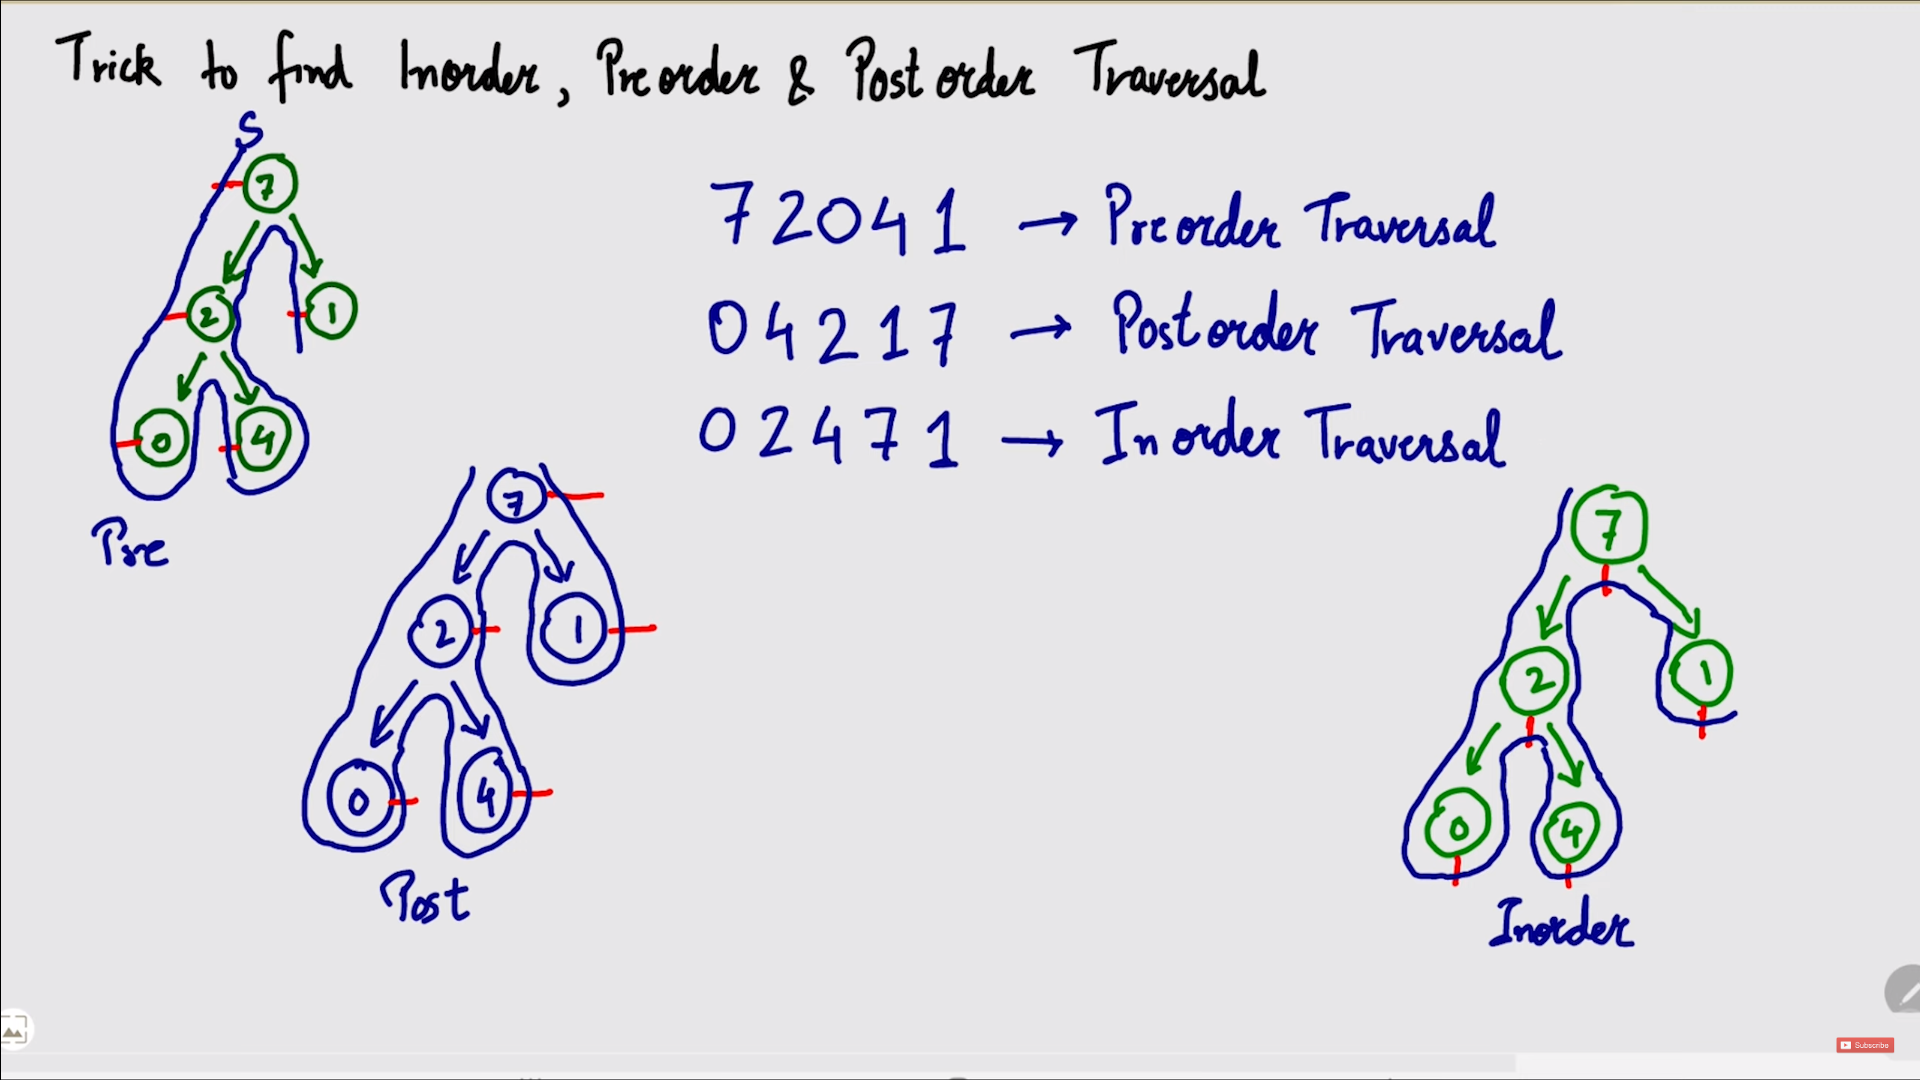 Trick to find Inorder, Preorder & Postorder Traversal
S
7
2 1
0 4
Pre
7 2 0 4 1 → Preorder Traversal
0 4 2 1 7 → Postorder Traversal
0 2 4 7 1 → Inorder Traversal
7
2 1
0 4
Post
7
2 1
0 4
Inorder
Subscribe